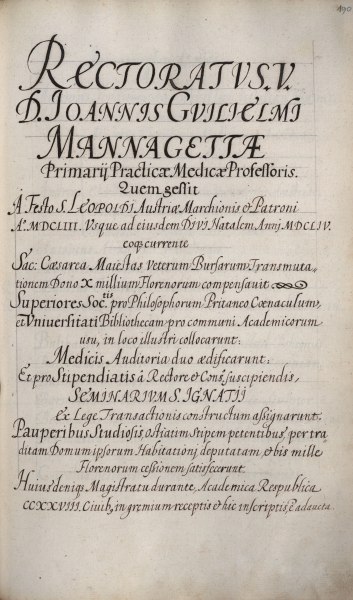 190
RECTORATVS. V.
D. IOANNIS GVILIELMI
MANNAGETTÆ
Primarij Practicæ Medicæ Professoris.
Quem gessit
A Festo S. LEOPOLDI Austriæ Marchionis et Patroni
Aº. MDCLIII. Vsque ad eiusdem DIVI Natalem Anni MDCLIV.
eoq̃ currente
Sac: Cæsarea Maiestas Veterum Bursarum Transmuta-
tionem Dono X millium Florenorum compensauit
Superiores Soc:tis pro Philosophorum Pritaneo Cœnaculum,
et Vniuersitati Bibliothecam pro communi Academicorum
usu, in loco illustri collocarunt:
Medicis Auditoria duo ædificarunt:
Et pro Stipendiatis à Rectore et Cons: suscipiendis,
SEMINARIVM S. IGNATII
ex Lege Transactionis constructum assignarunt:
Pauperibus Studiosis, ostiatim Stipem petentibus, per tra
ditam Domum ipsorum Habitationj deputatam, et bis mille
Florenorum cessionem satisfecerunt.
Huius deniq; Magistratu durante, Academica Respublica
CCXXVIII. Ciuib, in gremium receptis et hic inscriptis, ē adaucta.